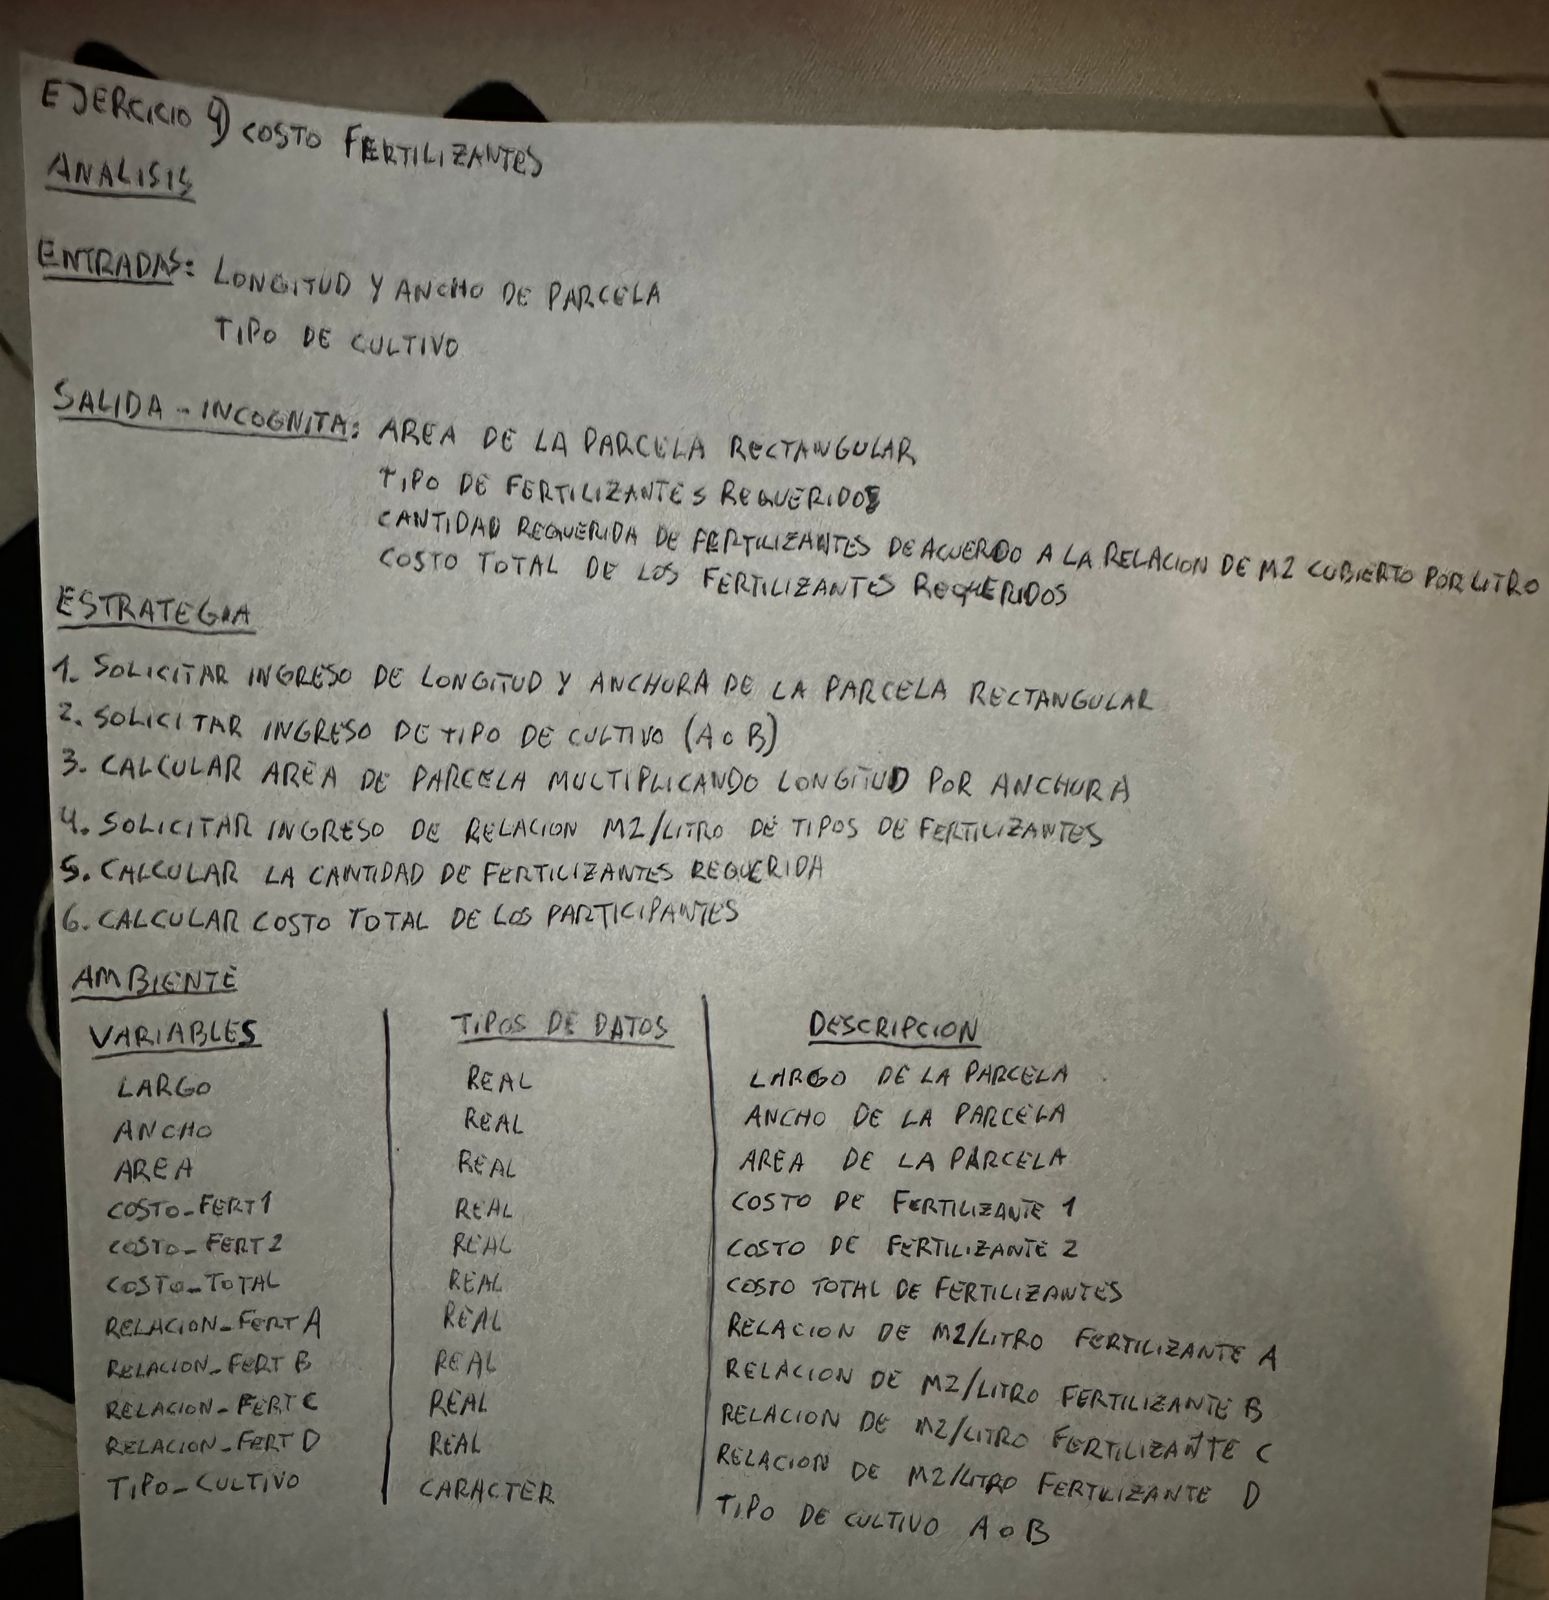 EJERCICIO 4) COSTO FERTILIZANTES
ANALISIS
ENTRADAS: LONGITUD Y ANCHO DE PARCELA
TIPO DE CULTIVO
SALIDA - INCOGNITA: AREA DE LA PARCELA RECTANGULAR
TIPO DE FERTILIZANTES REQUERIDOS
CANTIDAD REQUERIDA DE FERTILIZANTES DE ACUERDO A LA RELACION DE M2 CUBIERTO POR LITRO
COSTO TOTAL DE LOS FERTILIZANTES REQUERIDOS
ESTRATEGIA
1. SOLICITAR INGRESO DE LONGITUD Y ANCHURA DE LA PARCELA RECTANGULAR
2. SOLICITAR INGRESO DE TIPO DE CULTIVO (A o B)
3. CALCULAR AREA DE PARCELA MULTIPLICANDO LONGITUD POR ANCHURA
4. SOLICITAR INGRESO DE RELACION M2/LITRO DE TIPOS DE FERTILIZANTES
5. CALCULAR LA CANTIDAD DE FERTILIZANTES REQUERIDA
6. CALCULAR COSTO TOTAL DE LOS PARTICIPANTES
AMBIENTE
VARIABLES TIPOS DE DATOS DESCRIPCION
LARGO REAL LARGO DE LA PARCELA
ANCHO REAL ANCHO DE LA PARCELA
AREA REAL AREA DE LA PARCELA
COSTO_FERT1 REAL COSTO DE FERTILIZANTE 1
COSTO_FERT2 REAL COSTO DE FERTILIZANTE 2
COSTO_TOTAL REAL COSTO TOTAL DE FERTILIZANTES
RELACION_FERT A REAL RELACION DE M2/LITRO FERTILIZANTE A
RELACION_FERT B REAL RELACION DE M2/LITRO FERTILIZANTE B
RELACION_FERT C REAL RELACION DE M2/LITRO FERTILIZANTE C
RELACION_FERT D REAL RELACION DE M2/LITRO FERTILIZANTE D
TIPO_CULTIVO CARACTER TIPO DE CULTIVO A o B